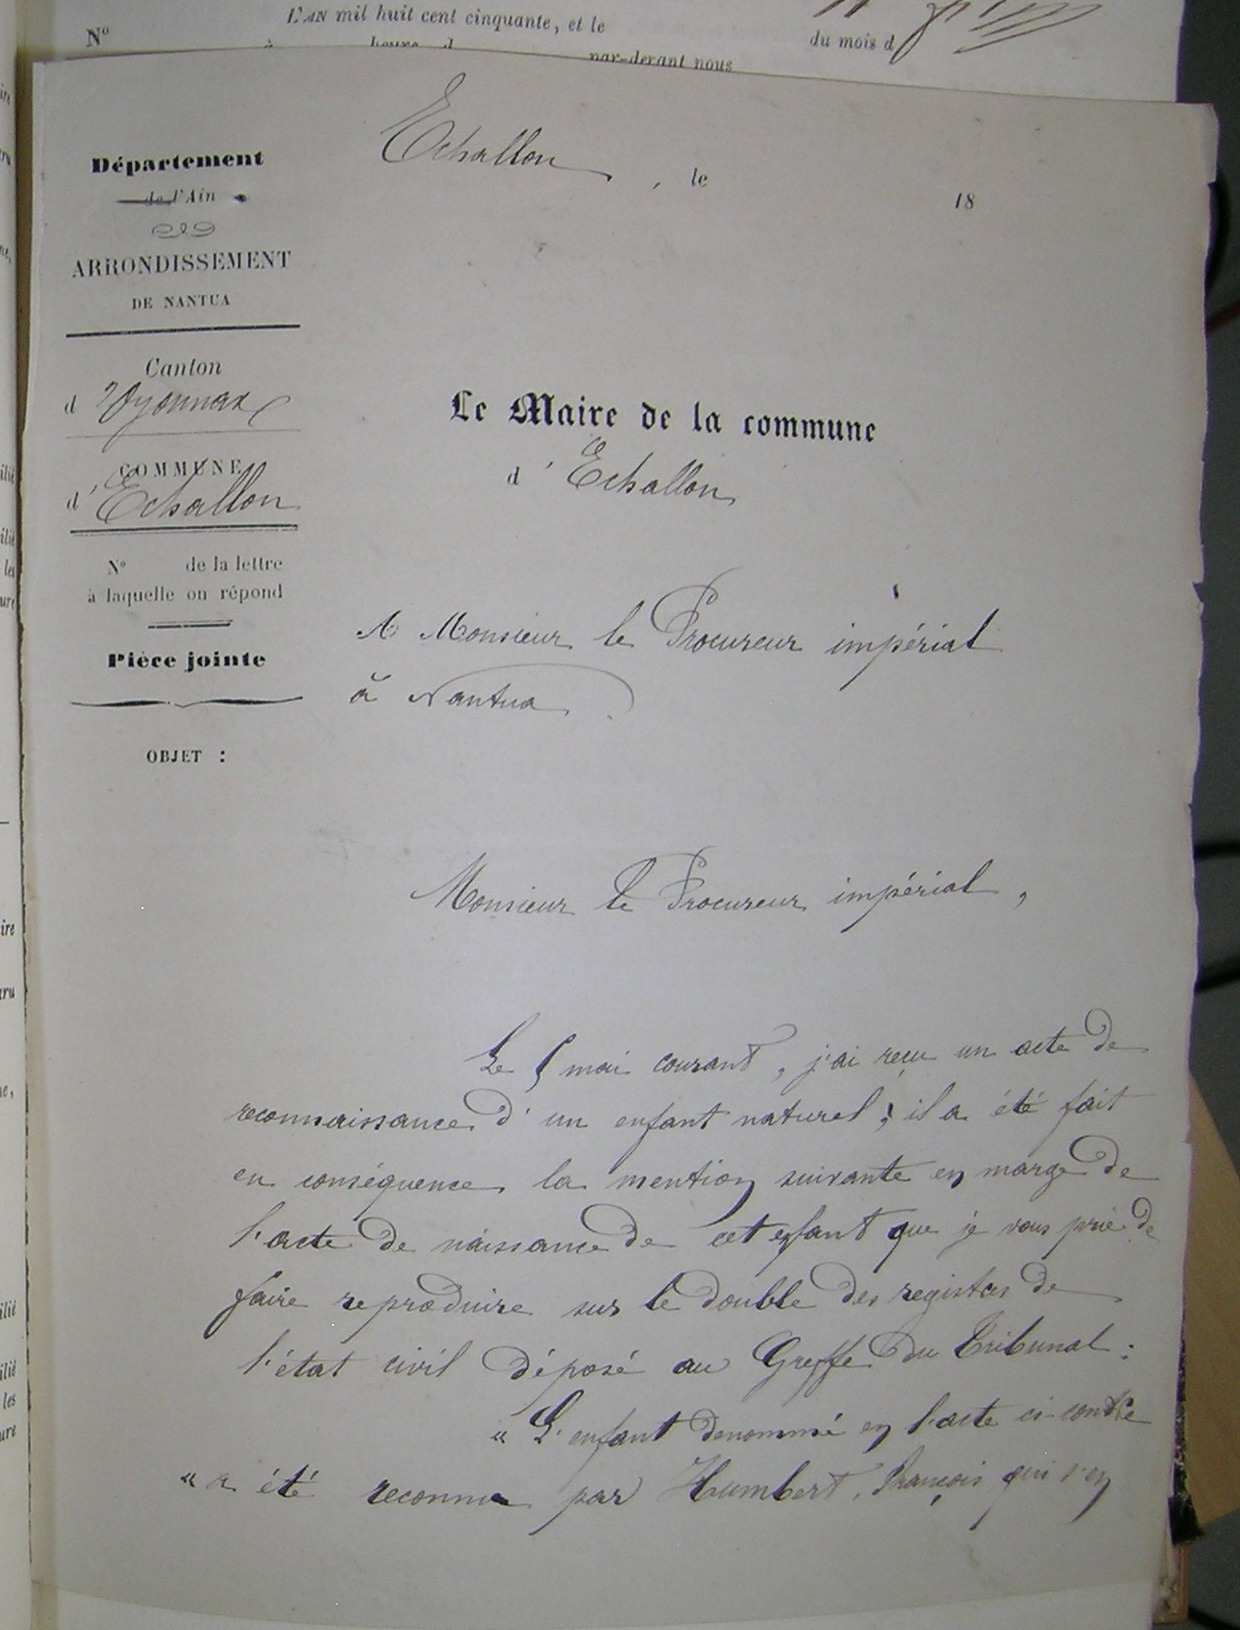 N°
L'AN mil huit cent cinquante, et le
du mois d
à heure d
par-devant nous
Echallon, le
18
Département
de l'Ain
ARRONDISSEMENT
DE NANTUA
Canton
d'Oyonnax
COMMUNE
d'Echallon
N° de la lettre
à laquelle on répond
Pièce jointe
OBJET :
Le Maire de la commune
d'Echallon
A Monsieur le Procureur impérial
à Nantua
Monsieur le Procureur impérial,
Le 5 mai courant, j'ai reçu un acte de
reconnaissance d'un enfant naturel; il a été fait
en conséquence la mention suivante en marge de
l'acte de naissance de cet enfant que je vous prie de
faire reproduire sur le double des registres de
l'état civil déposé au Greffe du Tribunal :
« L'enfant dénommé en l'acte ci-contre
« a été reconnu par Humbert, François qui s'en